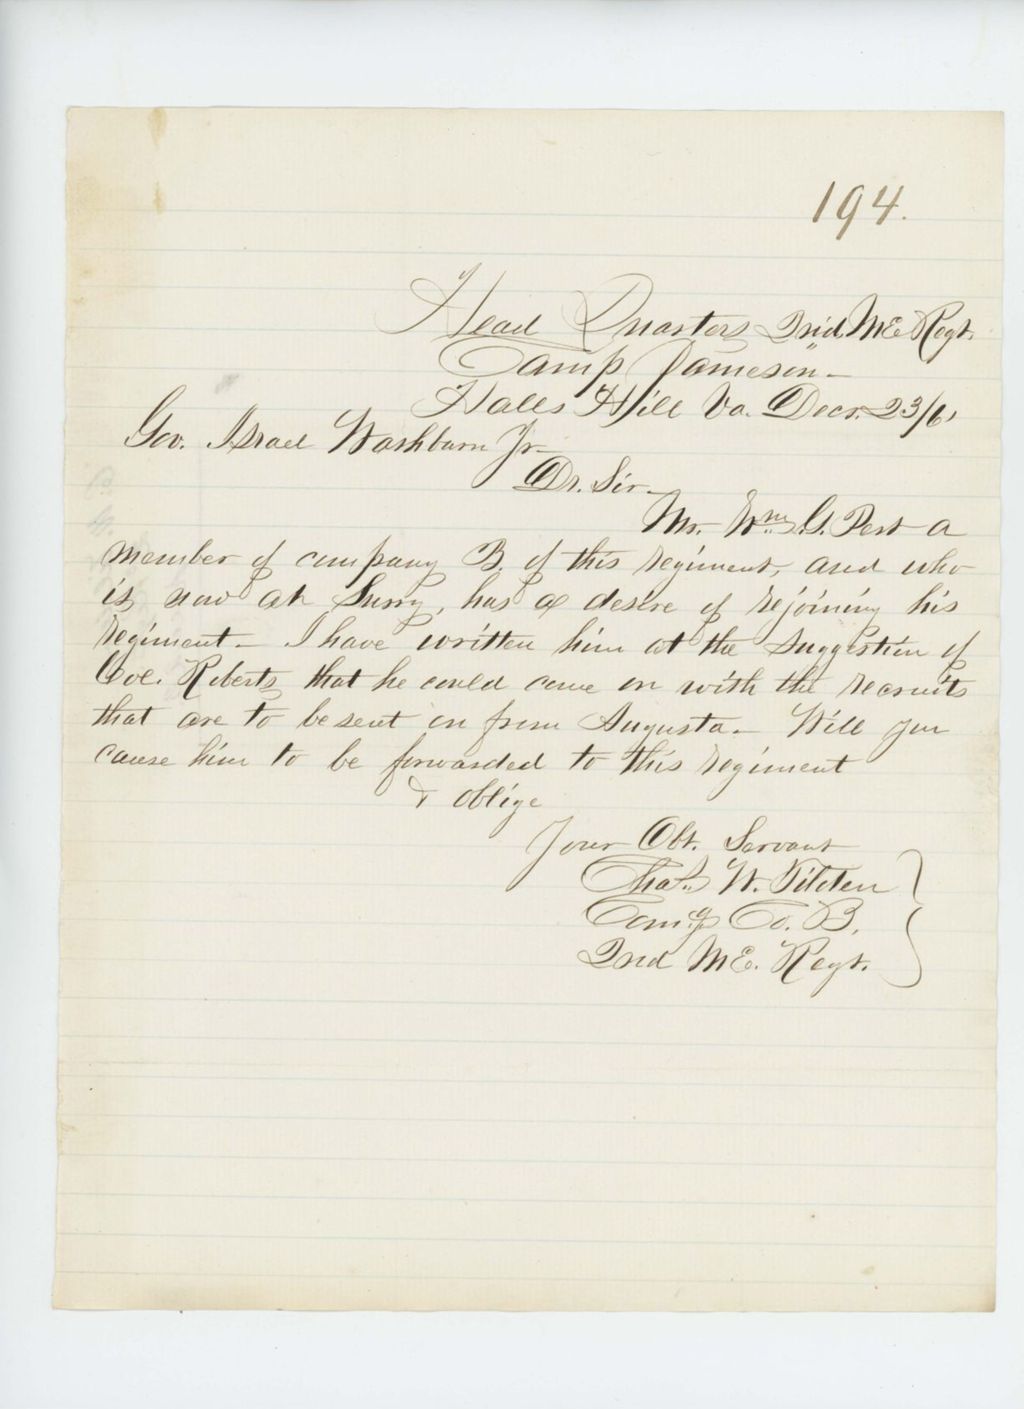 194.
Head Quarters 2nd. ME Regt.
Camp Jameson" –
Halls Hill Va. Decr. 23/61
Gov. Israel Washburn Jr –
Dr. Sir –
Mr. Wm. G. Pert a
member of company B. of this regiment, and who
is now at Surry, has a desire of rejoining his
regiment – I have written him at the suggestion of
Col. Roberts that he could come on with the recruits
that are to be sent on from Augusta – Will you
cause him to be forwarded to this regiment
& oblige
Your Obt. Servant
Chas. W. Tilden
Comdg Co. B.
2nd ME. Regt.